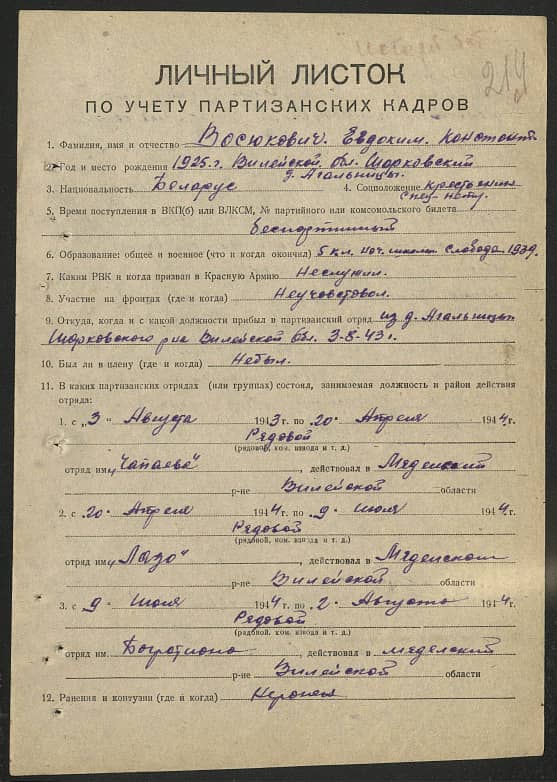 214
ЛИЧНЫЙ ЛИСТОК
ПО УЧЕТУ ПАРТИЗАНСКИХ КАДРОВ
1. Фамилия, имя и отчество Васюкович. Евдоким. Констант.
2. Год и место рождения 1925.г. Вилейской обл. Шарковский
д. Агальницы.
3. Национальность Беларус 4. Соцположение крестьянин
5. Время поступления в ВКП(б) или ВЛКСМ, № партийного или комсомольского билета
беспартийный
6. Образование: общее и военное (что и когда окончил) 5 кл. нач. школы Слобода 1939.
7. Каким РВК и когда призван в Красную Армию Неслужил.
8. Участие на фронтах (где и когда) Неучавствовал.
9. Откуда, когда и с какой должности прибыл в партизанский отряд из д. Агальницы
Шарковского р-на Вилейской обл. 3-8-43 г.
10. Был ли в плену (где и когда) Небыл.
11. В каких партизанских отрядах (или группах) состоял, занимаемая должность и район действия
отряда:
1. с „3" Августа 1943 г. по 20. Апреля 1944 г.
Рядовой
(рядовой, ком. взвода и т. д.)
отряд им. „Чапаева", действовал в Мяделский
р-не Вилейской области
2. с 20. Апреля 1944 г. по 9 июля 1944 г.
Рядовой
(рядовой, ком. взвода и т. д.)
отряд им. „Лазо", действовал в Мядельском
р-не Вилейской области
3. с 9 Июля 1944 г. по 2. Августа 1944 г.
Рядовой
(рядовой, ком. взвода и т. д.)
отряд им. Багратиона, действовал в мяделский
р-не Вилейской области
12. Ранения и контузии (где и когда) Неранен